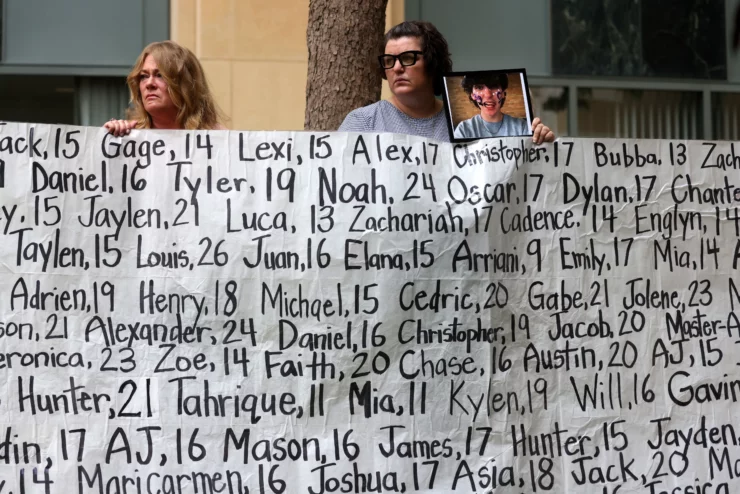 ack, 15 Gage, 14 Lexi, 15 Alex, 17 Christopher, 17 Bubba, 13 Zach
Daniel, 16 Tyler, 19 Noah, 24 Oscar, 17 Dylan, 17 Chante
y, 15 Jaylen, 21 Luca, 13 Zachariah, 17 Cadence, 14 Englyn, 14
Taylen, 15 Louis, 26 Juan, 16 Elana, 15 Arriani, 9 Emily, 17 Mia, 14 A
Adrien, 19 Henry, 18 Michael, 15 Cedric, 20 Gabe, 21 Jolene, 23 N
son, 21 Alexander, 24 Daniel, 16 Christopher, 19 Jacob, 20 Master-A
eronica, 23 Zoe, 14 Faith, 20 Chase, 16 Austin, 20 AJ, 15
Hunter, 21 Tahrique, 11 Mia, 11 Kylen, 19 Will, 16 Gavin
din, 17 AJ, 16 Mason, 16 James, 17 Hunter, 15 Jayden,
y, 14 Maricarmen, 16 Joshua, 17 Asia, 18 Jack, 20 Ma